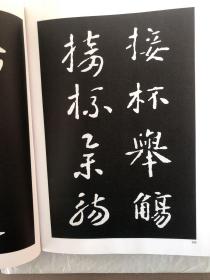 接杯舉觴
接杯舉觴